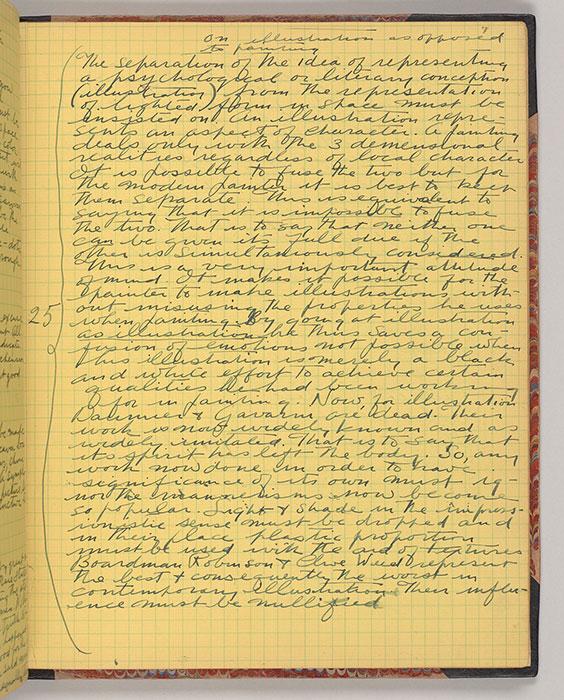 on illustration as opposed
to painting
The separation of the idea of representing
a psychological or literary conception
(illustration) from the representation
of lighted form in space must be
insisted on. An illustration repre-
sents an aspect of character. A painting
deals only with the 3 demensional
realities regardless of local character
It is possible to fuse the two but for
the modern painter it is best to keep
them separate. This is equivalent to
saying that it is impossible to fuse
the two. That is to say that neither one
can be given its full due if the
other is simultaneously considered.
This is a very important attitude
of mind. It makes it possible for the
painter to make illustrations with-
out misusing the properties he uses
25
when painting. By going at illustration
as illustration he thus saves a con
fusion of emotion not possible when
this illustration is merely a black
and white effort to achieve certain
qualities he had been working
for in painting. Now for illustration
Daumier & Gavarni are dead. Their
work is now widely known and as
widely imitated. That is to say that
its spirit has left the body. So, any
work now done in order to have
significance of its own must ig-
nor the mannerisms now become
so popular. Light & Shade in the impress-
ionistic sense must be dropped and
in their place plastic proportion
must be used with the aid of textures
Boardman Robinson & Clive Weed represent
the best & consequently the worst in
contemporary illustration. Their influ-
ence must be nullified